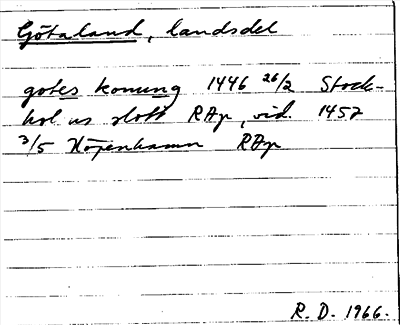 Götaland, landsdel
gotes konung 1446 26/2 Stock-
holms slott RAp, vid. 1457
3/5 Köpenhamn RAp
R. D. 1966.